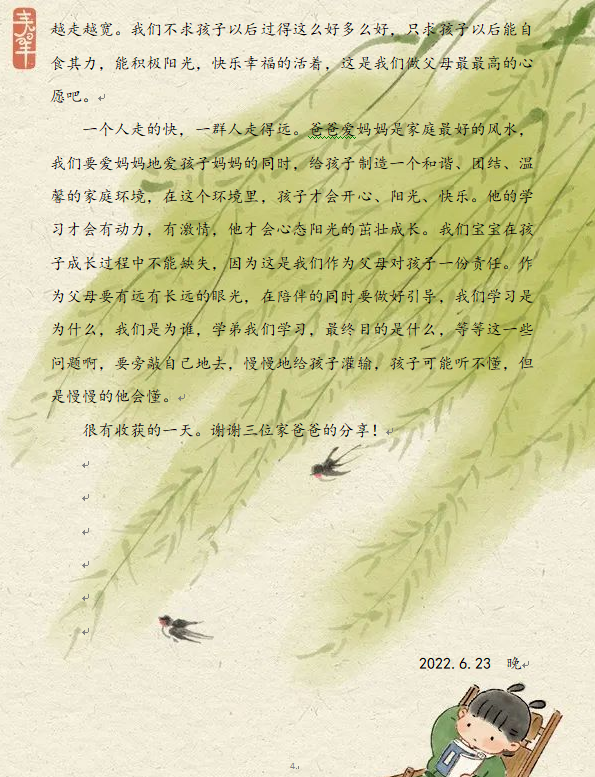 越走越宽。我们不求孩子以后过得这么好多么好，只求孩子以后能自
食其力，能积极阳光，快乐幸福的活着，这是我们做父母最最高的心
愿吧。
一个人走的快，一群人走得远。爸爸爱妈妈是家庭最好的风水，
我们要爱妈妈地爱孩子妈妈的同时，给孩子制造一个和谐、团结、温
馨的家庭环境，在这个环境里，孩子才会开心、阳光、快乐。他的学
习才会有动力，有激情，他才会心态阳光的茁壮成长。我们宝宝在孩
子成长过程中不能缺失，因为这是我们作为父母对孩子一份责任。作
为父母要有远有长远的眼光，在陪伴的同时要做好引导，我们学习是
为什么，我们是为谁，学弟我们学习，最终目的是什么，等等这一些
问题啊，要旁敲自己地去，慢慢地给孩子灌输，孩子可能听不懂，但
是慢慢的他会懂。
很有收获的一天。谢谢三位家爸爸的分享！
2022.6.23 晚
4